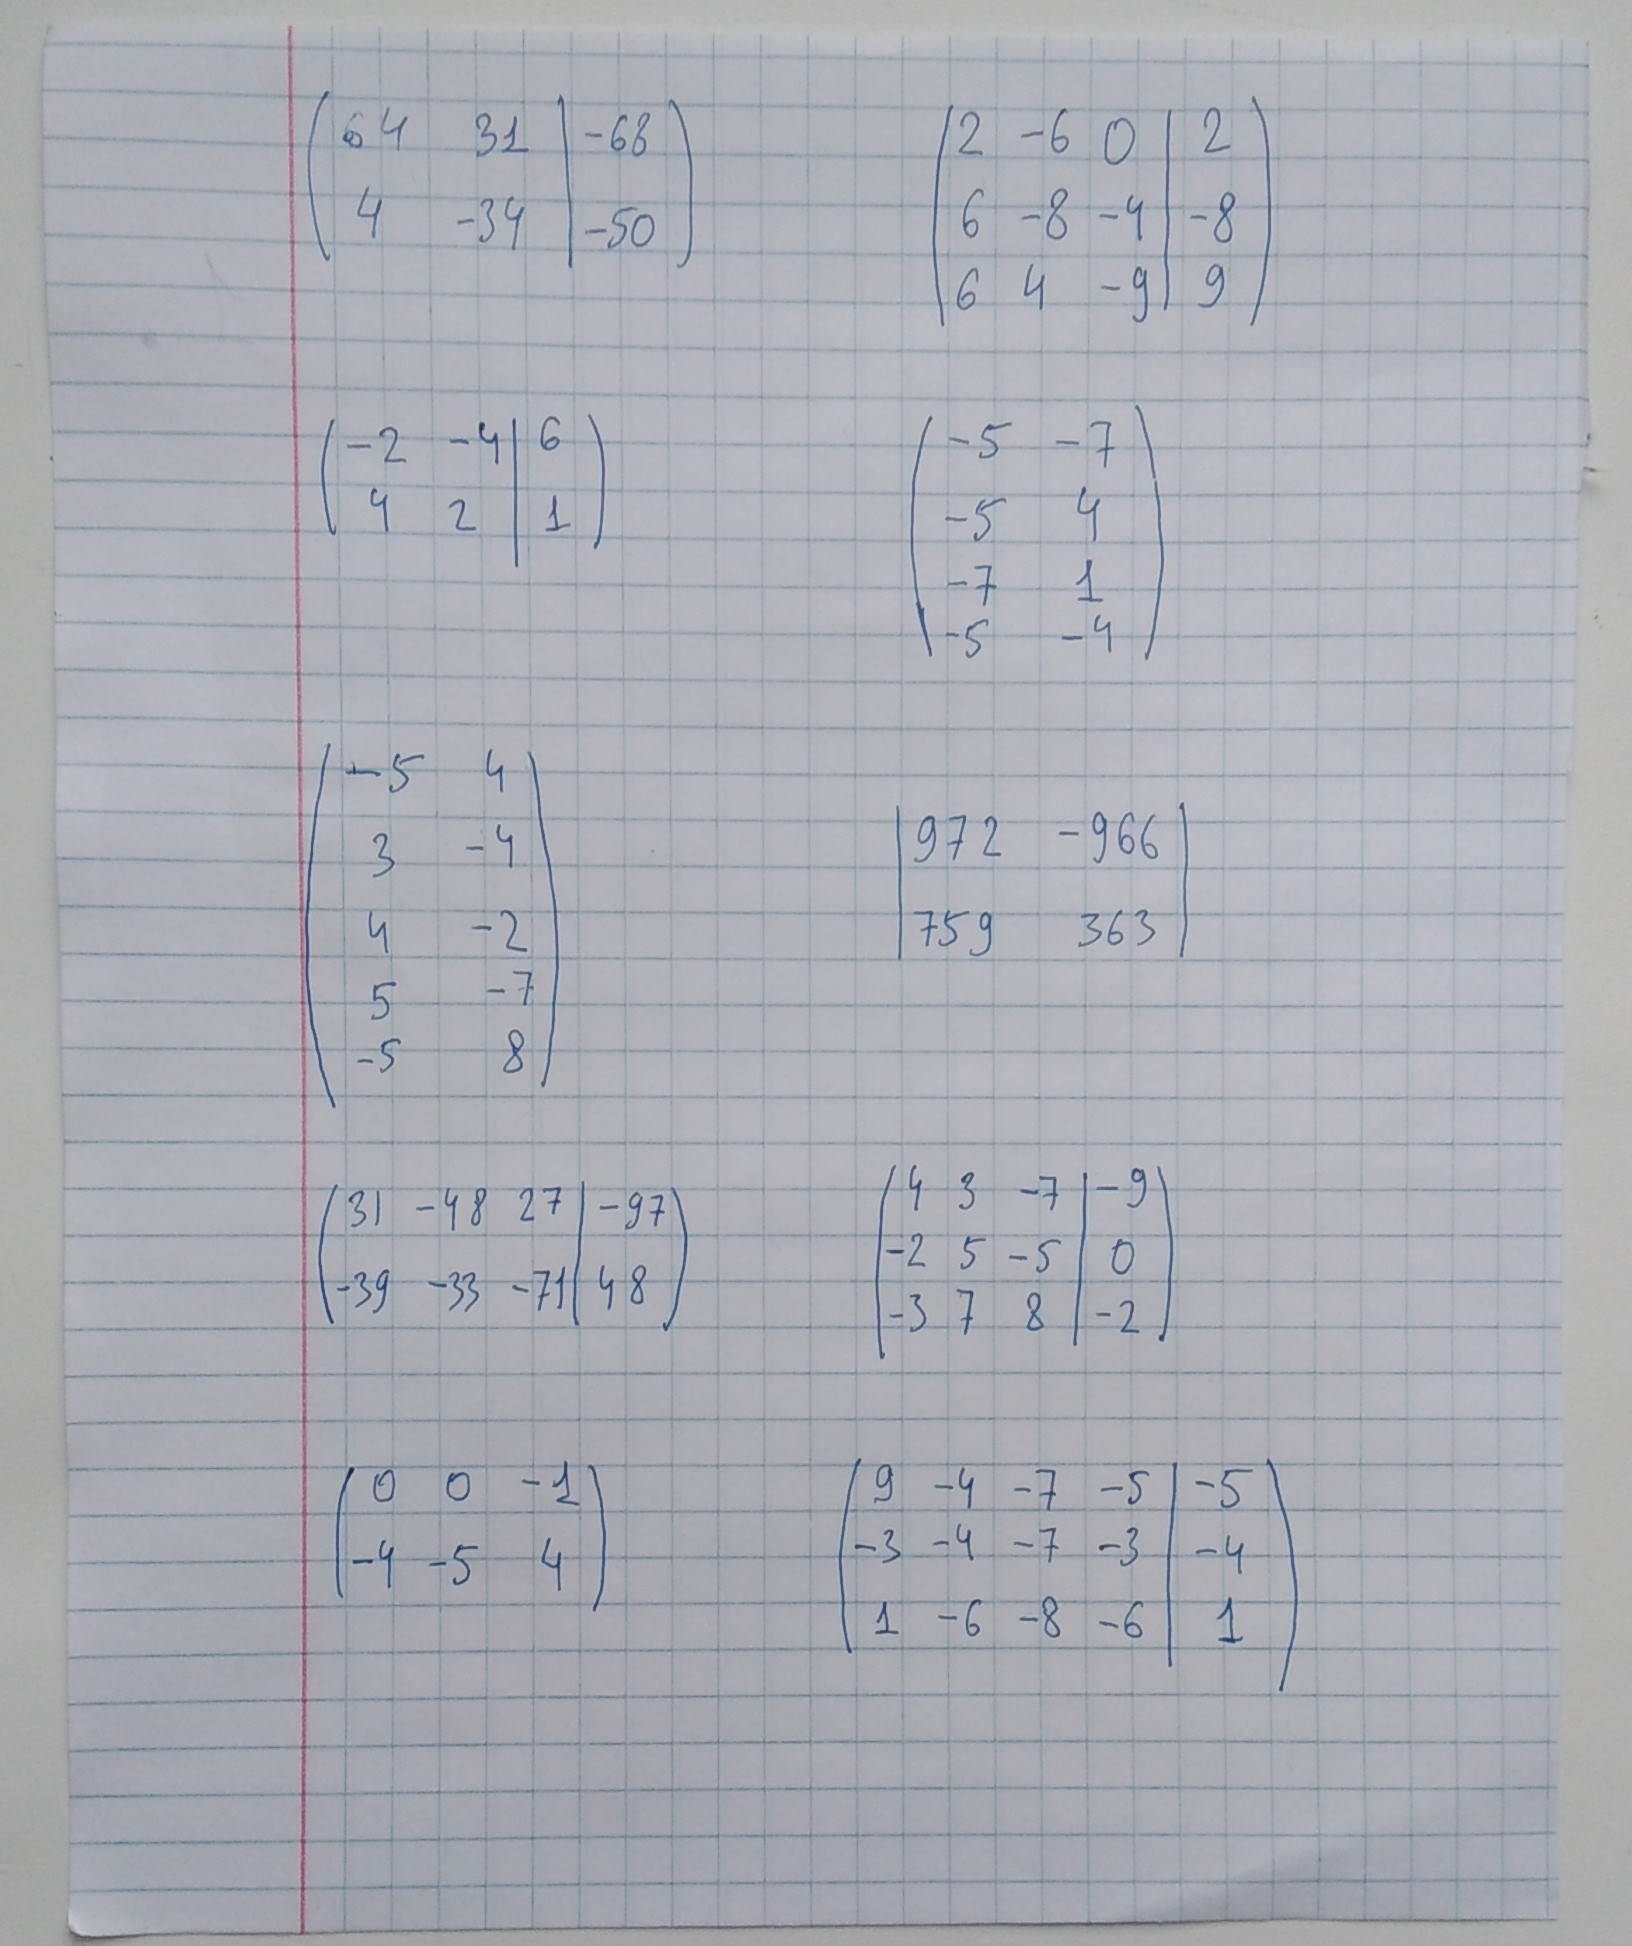 64 31 | -68
4 -34 | -50
2 -6 0 | 2
6 -8 -4 | -8
6 4 -9 | 9
-2 -4 | 6
4 2 | 1
-5 -7
-5 4
-7 1
-5 -4
-5 4
3 -4
4 -2
5 -7
-5 8
972 -966
759 363
31 -48 27 | -97
-39 -33 -71 | 48
4 3 -7 | -9
-2 5 -5 | 0
-3 7 8 | -2
0 0 -1
-4 -5 4
9 -4 -7 -5 | -5
-3 -4 -7 -3 | -4
1 -6 -8 -6 | 1